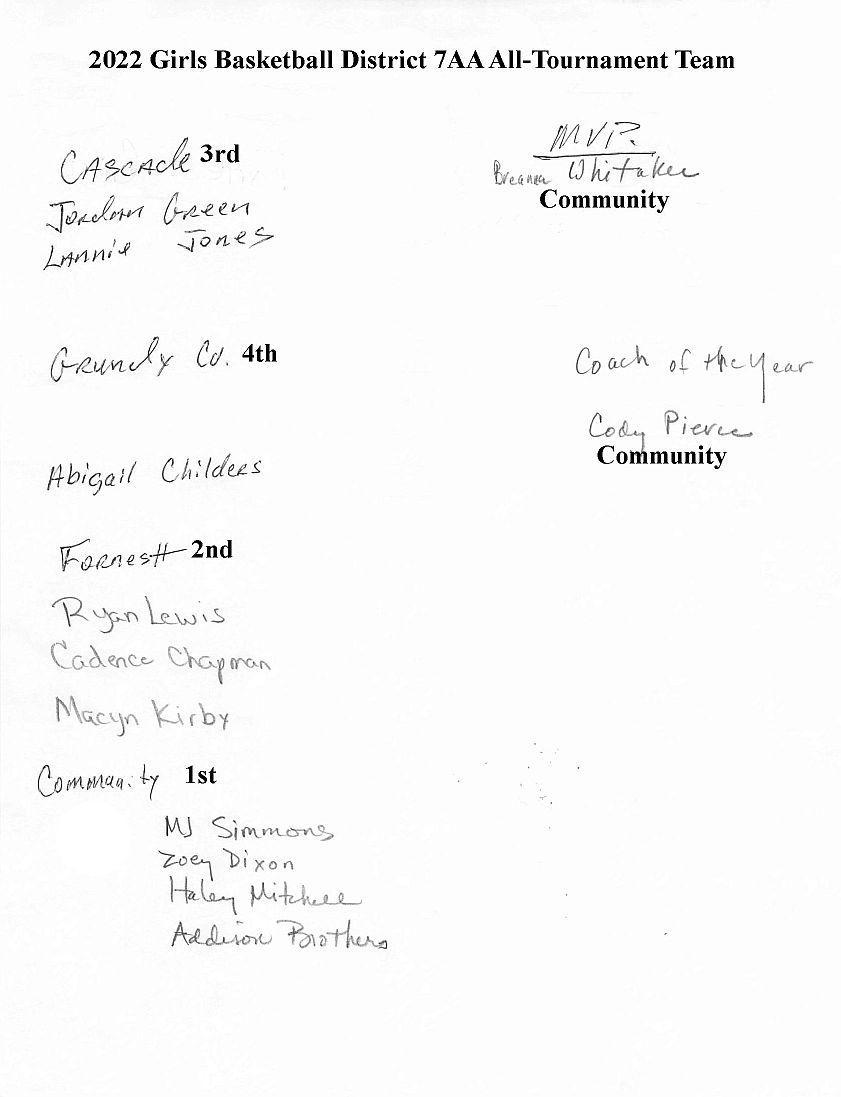 2022 Girls Basketball District 7AA All-Tournament Team
Cascade 3rd
Jordan Green
Lannie Jones
MVP.
Breanna Whitaker
Community
Grundy Co. 4th
Abigail Childers
Coach of the Year
Cody Pierce
Community
Forrest 2nd
Ryan Lewis
Cadence Chapman
Macyn Kirby
Community 1st
MJ Simmons
Zoey Dixon
Haley Mitchell
Addison Brothers